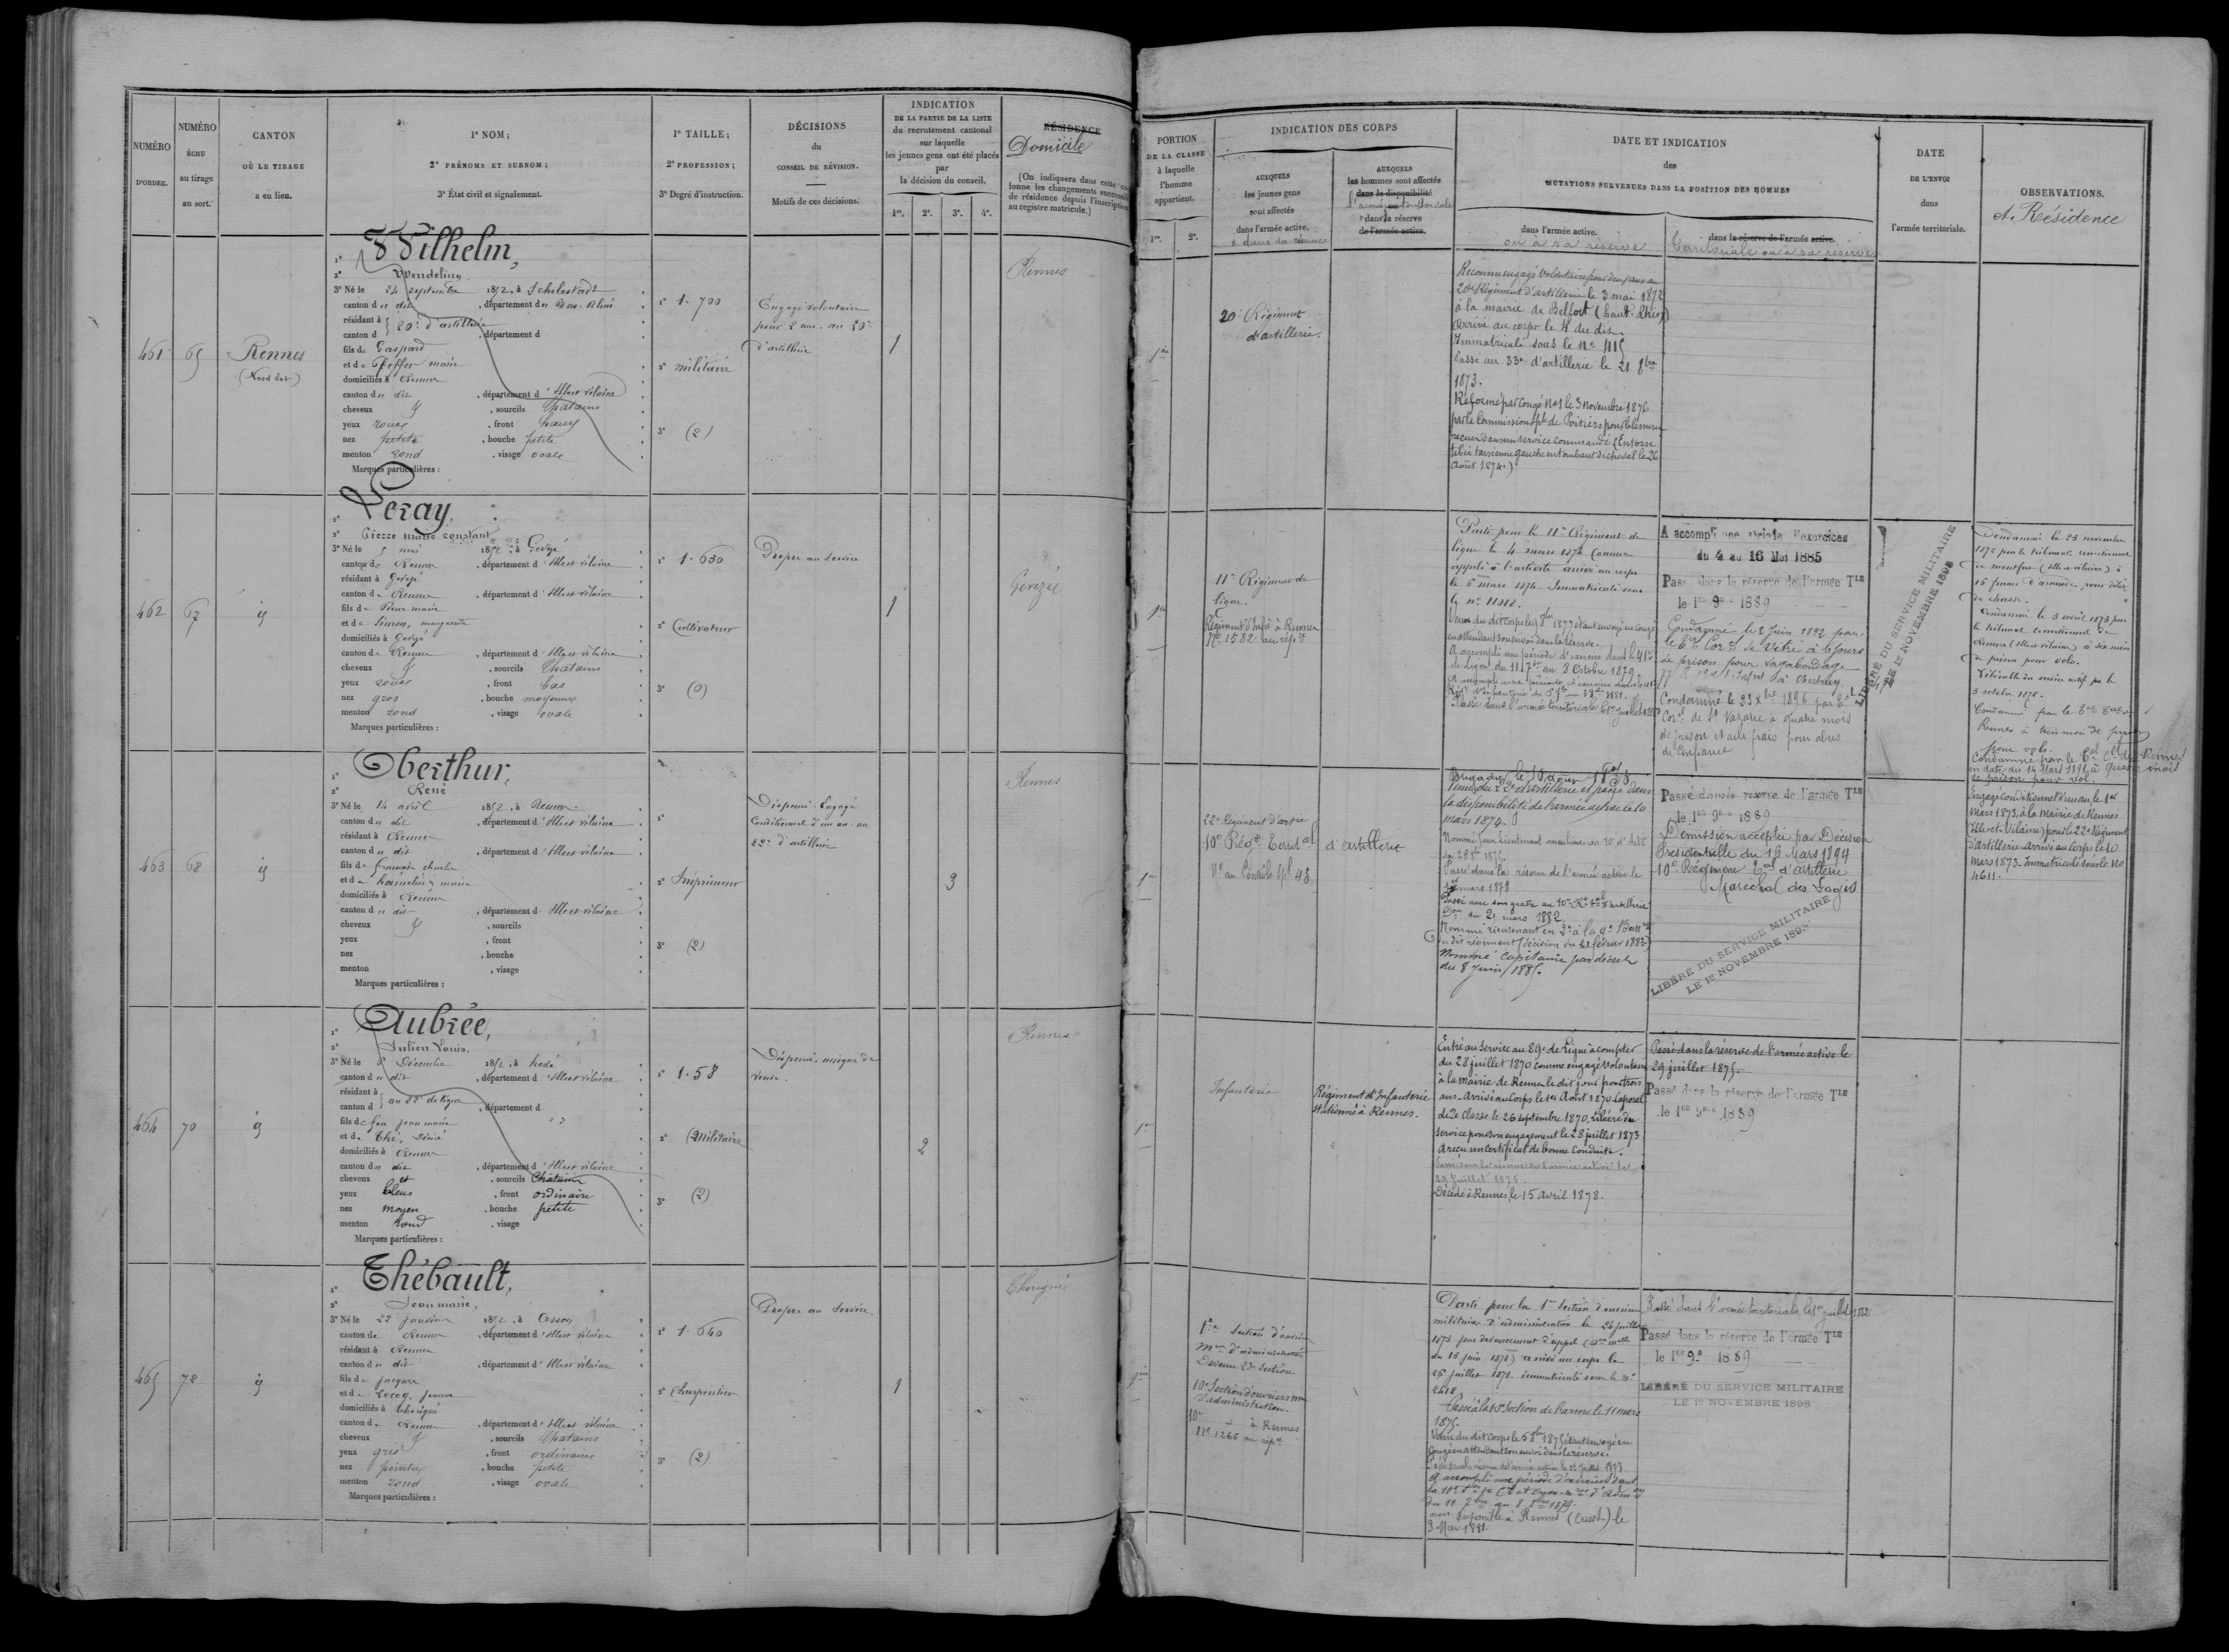 NUMÉRO
D'ORDRE.
NUMÉRO
ÉCHU
au tirage
au sort.
CANTON
OÙ LE TIRAGE
a eu lieu.
1° NOM;
2° PRÉNOMS ET SURNOM;
3° État civil et signalement.
1° TAILLE;
2° PROFESSION;
3° Degré d'instruction.
DÉCISIONS
du
CONSEIL DE RÉVISION.
Motifs de ces décisions.
INDICATION
DE LA PARTIE DE LA LISTE
du recrutement cantonal
sur laquelle
les jeunes gens ont été placés
par
la décision du conseil.
1re. 2e. 3e. 4e.
RÉSIDENCE
Domicile
(On indiquera dans cette co-
lonne les changements successifs
de résidence depuis l'inscription
au registre matricule.)
PORTION
DE LA CLASSE
à laquelle
l'homme
appartient.
1re. 2e.
INDICATION DES CORPS
AUXQUELS
les jeunes gens
sont affectés
dans l'armée active.
& dans sa réserve
AUXQUELS
les hommes sont affectés
dans la disponibilité
l'armée territoriale
dans la réserve
de l'armée active.
DATE ET INDICATION
des
MUTATIONS SURVENUES DANS LA POSITION DES HOMMES
dans l'armée active.
ou à sa réserve
dans la réserve de l'armée active.
Territoriale ou à sa réserve
DATE
DE L'ENVOI
dans
l'armée territoriale.
OBSERVATIONS.
et Résidence
461
65
Rennes
(Nord Est)
1° Wilhelm,
2° Wendeling
3° Né le 24 septembre 1852, à Schelestadt
canton du dit, département du Bas-Rhin
résidant à } 20e d'artillerie
canton d , département d
fils de Gaspard
et de Pfeffer marie
domiciliés à Rennes
canton du dit, département d'Ille et Vilaine
cheveux &, sourcils Chatains
yeux roux, front haut
nez petit, bouche petite
menton rond, visage ovale
Marques particulières :
1° 1-700
2° militaire
3° (2)
Engagé volontaire
pour 2 ans au 20e
d'artillerie
1
Rennes
1re
20e Régiment
d'artillerie.
Reconnu engagé volontaire pour deux ans au
20e Régiment d'artillerie le 3 mai 1872
à la mairie de Belfort (haut-Rhin)
arrivé au corps le 4 du dit.
Immatriculé sous le No 415
Passé au 33e d'artillerie le 21 8bre
1873.
Réformé par Congé No1 le 3 novembre 1876
par la Commission Sple de Poitiers pour blessures
reçues dans un service commandé (Entorse
tibia tarsienne gauche en tombant de cheval le 26
août 1874.)
462
67
id
1° Leray,
2° Pierre marie constant
3° Né le 5 mai 1852, à Gevezé
canton de Rennes, département d'Ille et Vilaine
résidant à Gevezé
canton de Rennes, département d'Ille et Vilaine
fils de Pierre marie
et de Simon, marguerite
domiciliés à Gevezé
canton de Rennes, département d'Ille et Vilaine
cheveux &, sourcils Chatains
yeux roux, front bas
nez gros, bouche moyenne
menton rond, visage ovale
Marques particulières :
1° 1-630
2° Cultivateur
3° (0)
Propre au service
1
Gevezé
1re
11e Régiment de
ligne.
Régiment d'Infie à Rennes
No 1582 au répre
Parti pour le 11e Régiment de
ligne le 4 mars 1874 Comme
appelé à l'activité arrivé au corps
le 6 mars 1874. Immatriculé sous
le no 11018.
1877 étant envoyé en congé
en attendant son envoi dans la Réserve.
A accompli une période d'exercice dans le 41e
de Ligne du 11 7bre au 8 Octobre 1879
A accompli une période d'exercices dans le
Passé dans l'armée territoriale le 1er juillet
A accompli une période d'exercices
du 4 au 16 Mai 1885
Passé dans la réserve de l'armée TLE
le 1er 9bre 1889
Condamné le 2 Juin 1892 par
le Cor de Vitré à 6 jours
de prison pour vagabondage
Condamné le 23 Xbre 1896 par
Corel de St Nazaire à quatre mois
de prison et aux frais pour abus
de Confiance
LIBÉRÉ DU SERVICE MILITAIRE
LE 1er NOVEMBRE 1898
Condamné le 23 novembre
1872 par le tribunal correctionnel
de montfort (Ille et Vilaine) à
16 francs d'amende, pour délit
de chasse.
Condamné le 3 avril 1873 par
le tribunal correctionnel de
Rennes (Ille et Vilaine) à six mois
de prison pour vols.
3 octobre 1878.
Condamné par le
Rennes à trois mois de prison
pour vols.
Condamné par le Tal Cel de Rennes
en date du 14 Mars 1891 à quatre mois
de prison pour vol.
463
68
id
1° Oberthur,
2° René
3° Né le 14 avril 1852, à Rennes
canton du dit, département d'Ille et Vilaine
résidant à Rennes
canton du dit, département d'Ille et Vilaine
fils de françois charles
et de hamelin, marie
domiciliés à Rennes
canton du dit, département d'Ille et Vilaine
cheveux &, sourcils
yeux , front
nez , bouche
menton , visage
Marques particulières :
1°
2° Imprimeur
3° (2)
Dispensé. Engagé
Conditionnel d'un an au
22e d'artillerie
3
Rennes
1re
22e Régiment d'artie
10e Régt Territal
No au Contrôle spl 43
d'artillerie
Venu du 22e d'artillerie et passé dans
la disponibilité de l'armée active le 10
mars 1874.
Nommé sous-Lieutenant auxiliaire au 10 d'Artie
Passé dans la réserve de l'armée active le
mars 1878
Passé avec son grade au 10e Rt Tal d'artillerie
Don du 21 mars 1882.
Nommé lieutenant en 2e à la 9e Batterie
du dit régiment (décision du 21 février 1883)
Nommé Capitaine par décret
du 8 Juin 1885.
Passé dans la réserve de l'armée TLE
le 1er 9bre 1889
Démission acceptée par Décision
Présidentielle du 16 Mars 1894
10e Régiment Tal d'artillerie
Maréchal des Logis
LIBÉRÉ DU SERVICE MILITAIRE
LE 1er NOVEMBRE 189
Engagé conditionnel d'un an le 1er
mars 1873, à la mairie de Rennes
(Ille-et-Vilaine) pour le 22e Régiment
d'artillerie. arrivé au Corps le 10
mars 1873. Immatriculé sous le No
4611.
464
70
id
1° Aubrée,
2° Julien Louis.
3° Né le 8 Décembre 1852, à hédé
canton du dit, département d'Ille et Vilaine
résidant à } au 22e de ligne
canton d , département d
fils de feu jean marie
et de Thé, Désiré
domiciliés à Rennes
canton du dit, département d'Ille et Vilaine
cheveux et, sourcils Chatains
yeux bleus, front ordinaire
nez moyen, bouche petite
menton rond, visage
Marques particulières :
1° 1-58
2° (militaire
3° (2)
Dispensé. unique de
veuve.
2
Rennes
1re
Infanterie
Régiment d'Infanterie
stationné à Rennes.
Entré au Service au 89e de Ligne à compter
du 28 juillet 1870 comme engagé volontaire
à la mairie de Rennes le dit jour pour trois
ans. Arrivé au Corps le 1er Août 1870 Caporal
de 2e Classe le 26 septembre 1870. Libéré du
service pour son engagement le 28 juillet 1873
a reçu un certificat de bonne conduite.
Passé dans la réserve de l'armée active le
29 juillet 1875.
Décédé à Rennes, le 15 avril 1878.
Passé dans la réserve de l'armée active le
29 juillet 1875.
Passé dans la réserve de l'armée TLE
le 1er 9bre 1889
465
72
id
1° Thébault,
2° Jean marie,
3° Né le 22 janvier 1852, à Cesson
canton de Rennes, département d'Ille et Vilaine
résidant à Rennes
canton du dit, département d'Ille et Vilaine
fils de jacques
et de Lecoq, jeanne
domiciliés à Thorigné
canton de Rennes, département d'Ille et Vilaine
cheveux &, sourcils Chatains
yeux gris, front ordinaire
nez pointu, bouche petite
menton rond, visage ovale
Marques particulières :
1° 1-640
2° Charpentier
3° (2)
Propre au Service.
1
Thorigné
1re Section d'ouvriers
mres d'administration
Devenue 23e Section
10e Section d'ouvriers mres
d'administration.
10e " à Rennes
No 1266 au répre
Parti pour la 1re section d'ouvriers
militaires d'administration le 24 juillet
1873 par devancement d'appel
du 13 juin 1873) arrivé au corps le
26 juillet 1873. immatriculé sous le no
2618
Passé à la Section de l'arme le 11 mars
1875.
Venu du dit Corps le 5 8bre 1875 étant envoyé en
Congé en attendant son envoi dans la réserve.
A accompli une période d'exercices dans
du 11 7bre au 8 8bre 1879.
non disponible à Rennes (Ouest) le
9 Mai 1881.
Passé dans l'armée territoriale le 1er juillet 1882
Passé dans la réserve de l'armée TLE
le 1er 9bre 1889
LIBÉRÉ DU SERVICE MILITAIRE
LE 1er NOVEMBRE 1898